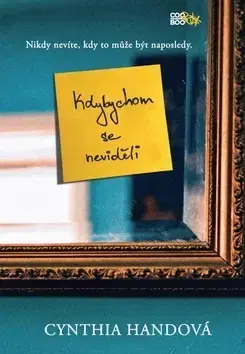 COO
BOO
Nikdy nevíte, kdy to může být naposledy.
Kdybychom
se
neviděli
CYNTHIA HANDOVÁ